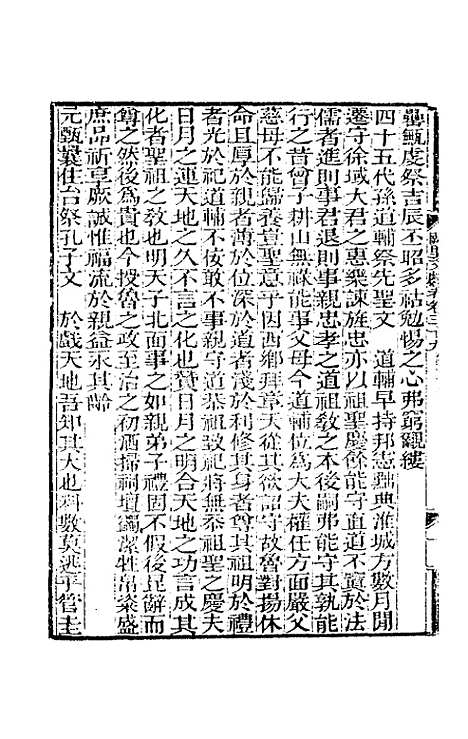 罍甒虔祭吉辰丕昭多祜勉惕之心弗窮覼縷
四十五代孫道輔祭先聖文　道輔早持邦憲黜典淮城方數月間
遷守徐域大君之惠樂諫旌忠亦以祖聖慶餘能守直道不實於法
儒者進則事君退則事親忠孝之道祖敎之本後嗣弗能守其孰能
行之昔曾子耕山無祿能事父母今道輔位爲大夫權任方面嚴父
慈母不能歸養董聖意子因西鄕拜章天從其欲詔守故魯對揚休
命且厚於親者薄於位深於道者淺於利修其身者尊其祖明於禮
者光於祀道輔不佞敢不事親守道恭祖致祀將無忝祖聖之慶夫
日月之運天地之久不言之化也贊日月之明合天地之功言成其
化者聖祖之敎也明天子北面事之如親弟子禮固不假後昆辭而
尊之然後爲貴也今授魯之政至治之初洒掃祠壇蠲潔牲帛粢盛
庶品祈享厥誠惟福流於親益永其齡
元甄囊佳台祭孔子文　於戲天地吾知其大也科數莫逃乎管圭